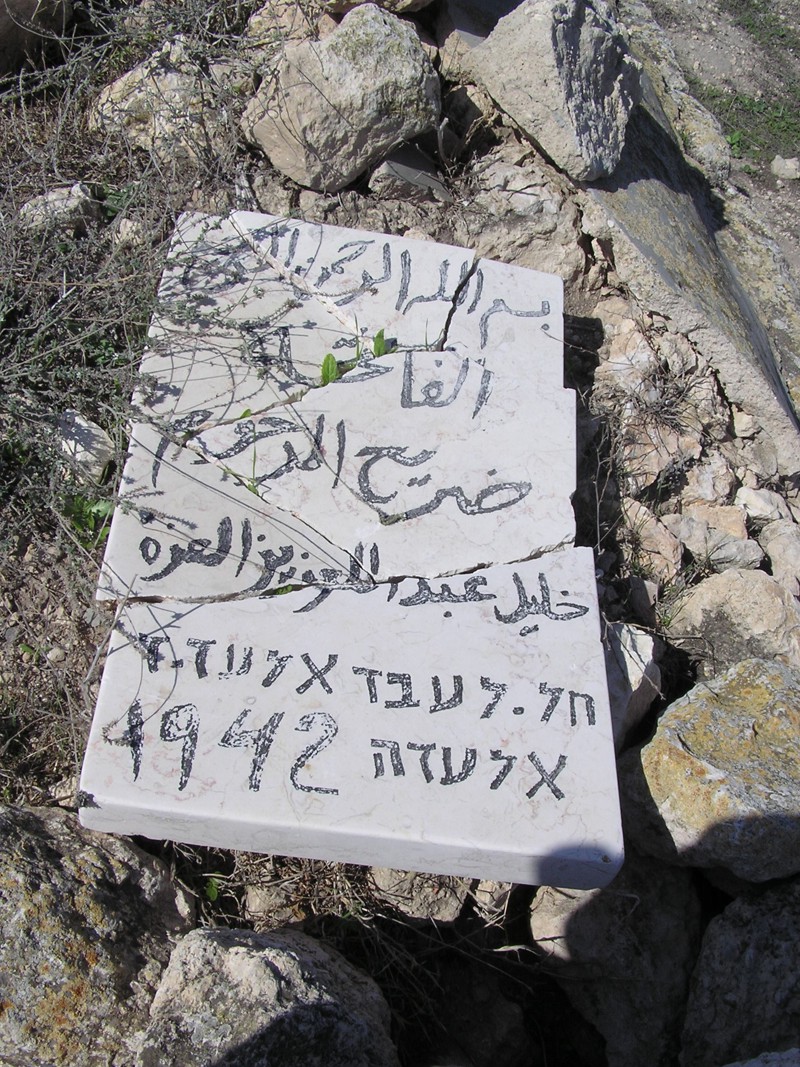 بسم الله الرحمن
الفاتحة
ضريح المرحوم
خليل عبد العزيز العزة
חל.ל עבד אלעד.ז
אלעזה 1942